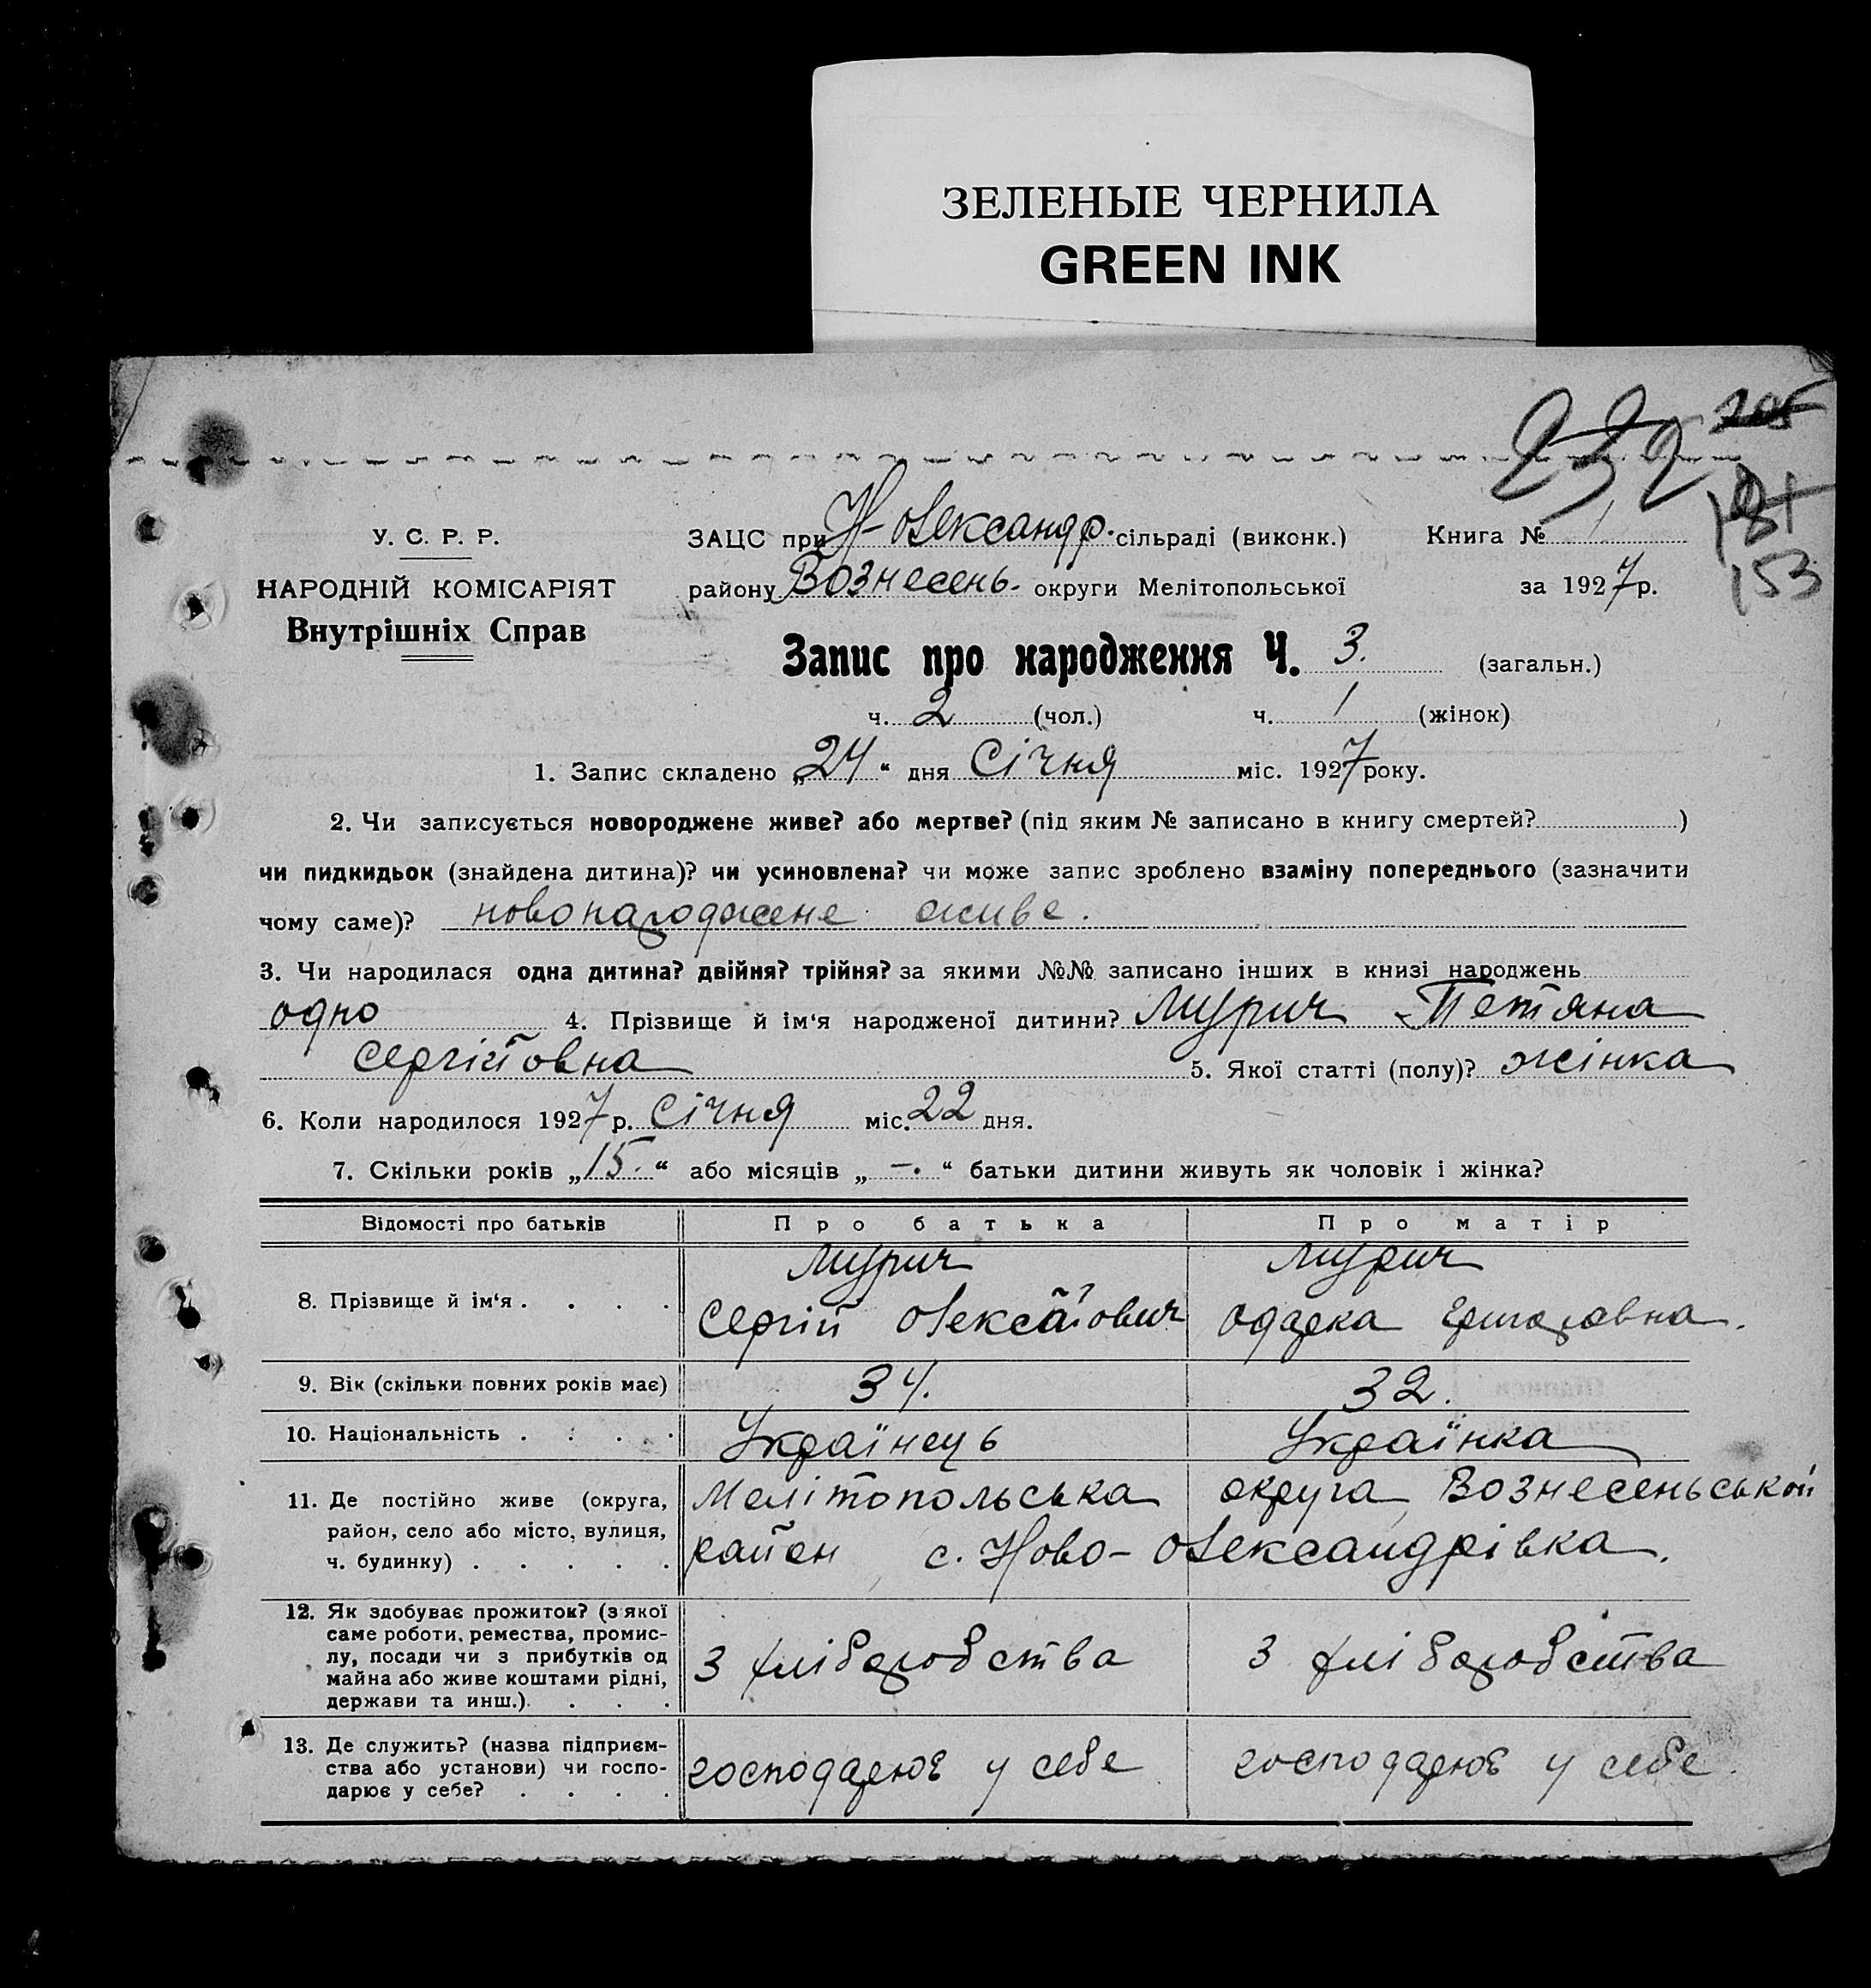 ЗЕЛЕНЫЕ ЧЕРНИЛА
GREEN INK
232 205
181
153
У. С. Р. Р.
НАРОДНІЙ КОМІСАРІЯТ
Внутрішніх Справ
ЗАЦС при Н-Олександр. сільраді (виконк.) Книга № 1
району Вознесень. округи Мелітопольської за 1927 р.
Запис про народження Ч. 3. (загальн.)
ч. 2 (чол.) ч. 1 (жінок)
1. Запис складено „24“ дня Січня міс. 1927 року.
2. Чи записується новороджене живе? або мертве? (під яким № записано в книгу смертей? )
чи пидкидьок (знайдена дитина)? чи усиновлена? чи може запис зроблено взаміну попереднього (зазначити
чому саме)? новонароджене живе.
3. Чи народилася одна дитина? двійня? трійня? за якими №№ записано інших в книзі народжень
одно 4. Прізвище й ім‘я народженої дитини? Мурич Тетяна
Сергійовна 5. Якої статті (полу)? жінка
6. Коли народилося 1927 р. Січня міс. 22 дня.
7. Скільки років „15.“ або місяців „—.“ батьки дитини живуть як чоловік і жінка?
Відомості про батьків Про батька Про матір
8. Прізвище й ім‘я . . . . Мурич Сергій Мурич Одарка Григоровна.
9. Вік (скільки повних років має) 34. 32.
10. Національність . . . . Українець Українка
11. Де постійно живе (округа, Мелітопольська округа Вознесеньськой
район, село або місто, вулиця, район с. Ново-Олександрівка.
ч. будинку) . . . . .
12. Як здобуває прожиток? (з якої
саме роботи, ремества, промис-
лу, посади чи з прибутків од З хліборобства З хліборобства
майна або живе коштами рідні,
держави та инш.) . . .
13. Де служить? (назва підприєм-
ства або установи) чи госпо- господарює у себе господарює у себе.
дарює у себе? . . . .